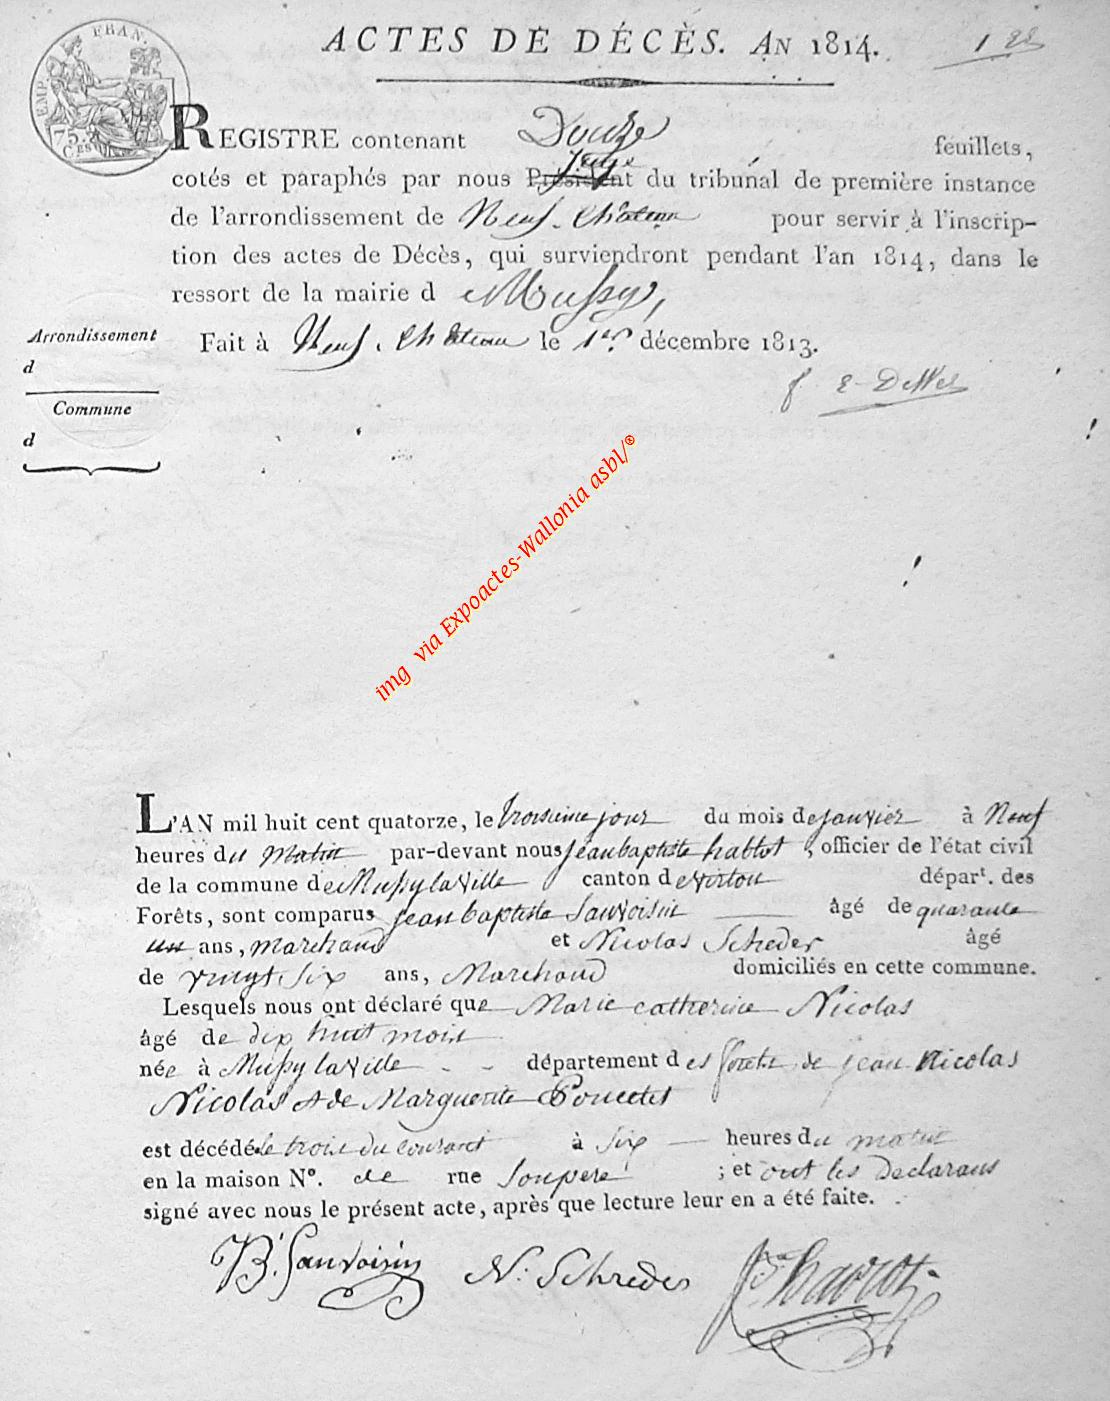 EMP. FRAN.
75. Ces
ACTES DE DÉCÈS. AN 1814.
1er
REGISTRE contenant Douze feuillets,
cotés et paraphés par nous Président Juge du tribunal de première instance
de l'arrondissement de Neuf-Château pour servir à l'inscrip-
tion des actes de Décès, qui surviendront pendant l'an 1814, dans le
ressort de la mairie d Mussy,
Fait à Neuf-Château le 1er. décembre 1813.
Arrondissement
d
Commune
d
img via Expoactes-Wallonia asbl/®
L'AN mil huit cent quatorze, le troisieme jour du mois de janvier à Neuf
heures du Matin par-devant nous jean baptiste, officier de l'état civil
de la commune de Mussy la Ville canton de virton départ. des
Forêts, sont comparus jean baptiste Sauvoisin âgé de quarante
un ans, marchand et Nicolas Schreder âgé
de vingt six ans, Marchand domiciliés en cette commune.
Lesquels nous ont déclaré que Marie catherine Nicolas
âgé de dix huit mois
née à Mussy la Ville - - département des forets de jean Nicolas
Nicolas & de Marguerite Poncelet
est décédé le trois du courant à six heures du matin
en la maison N°. de rue Soupere ; et ont les declarans
signé avec nous le présent acte, après que lecture leur en a été faite.
JB. Sauvoisin N: Schreder